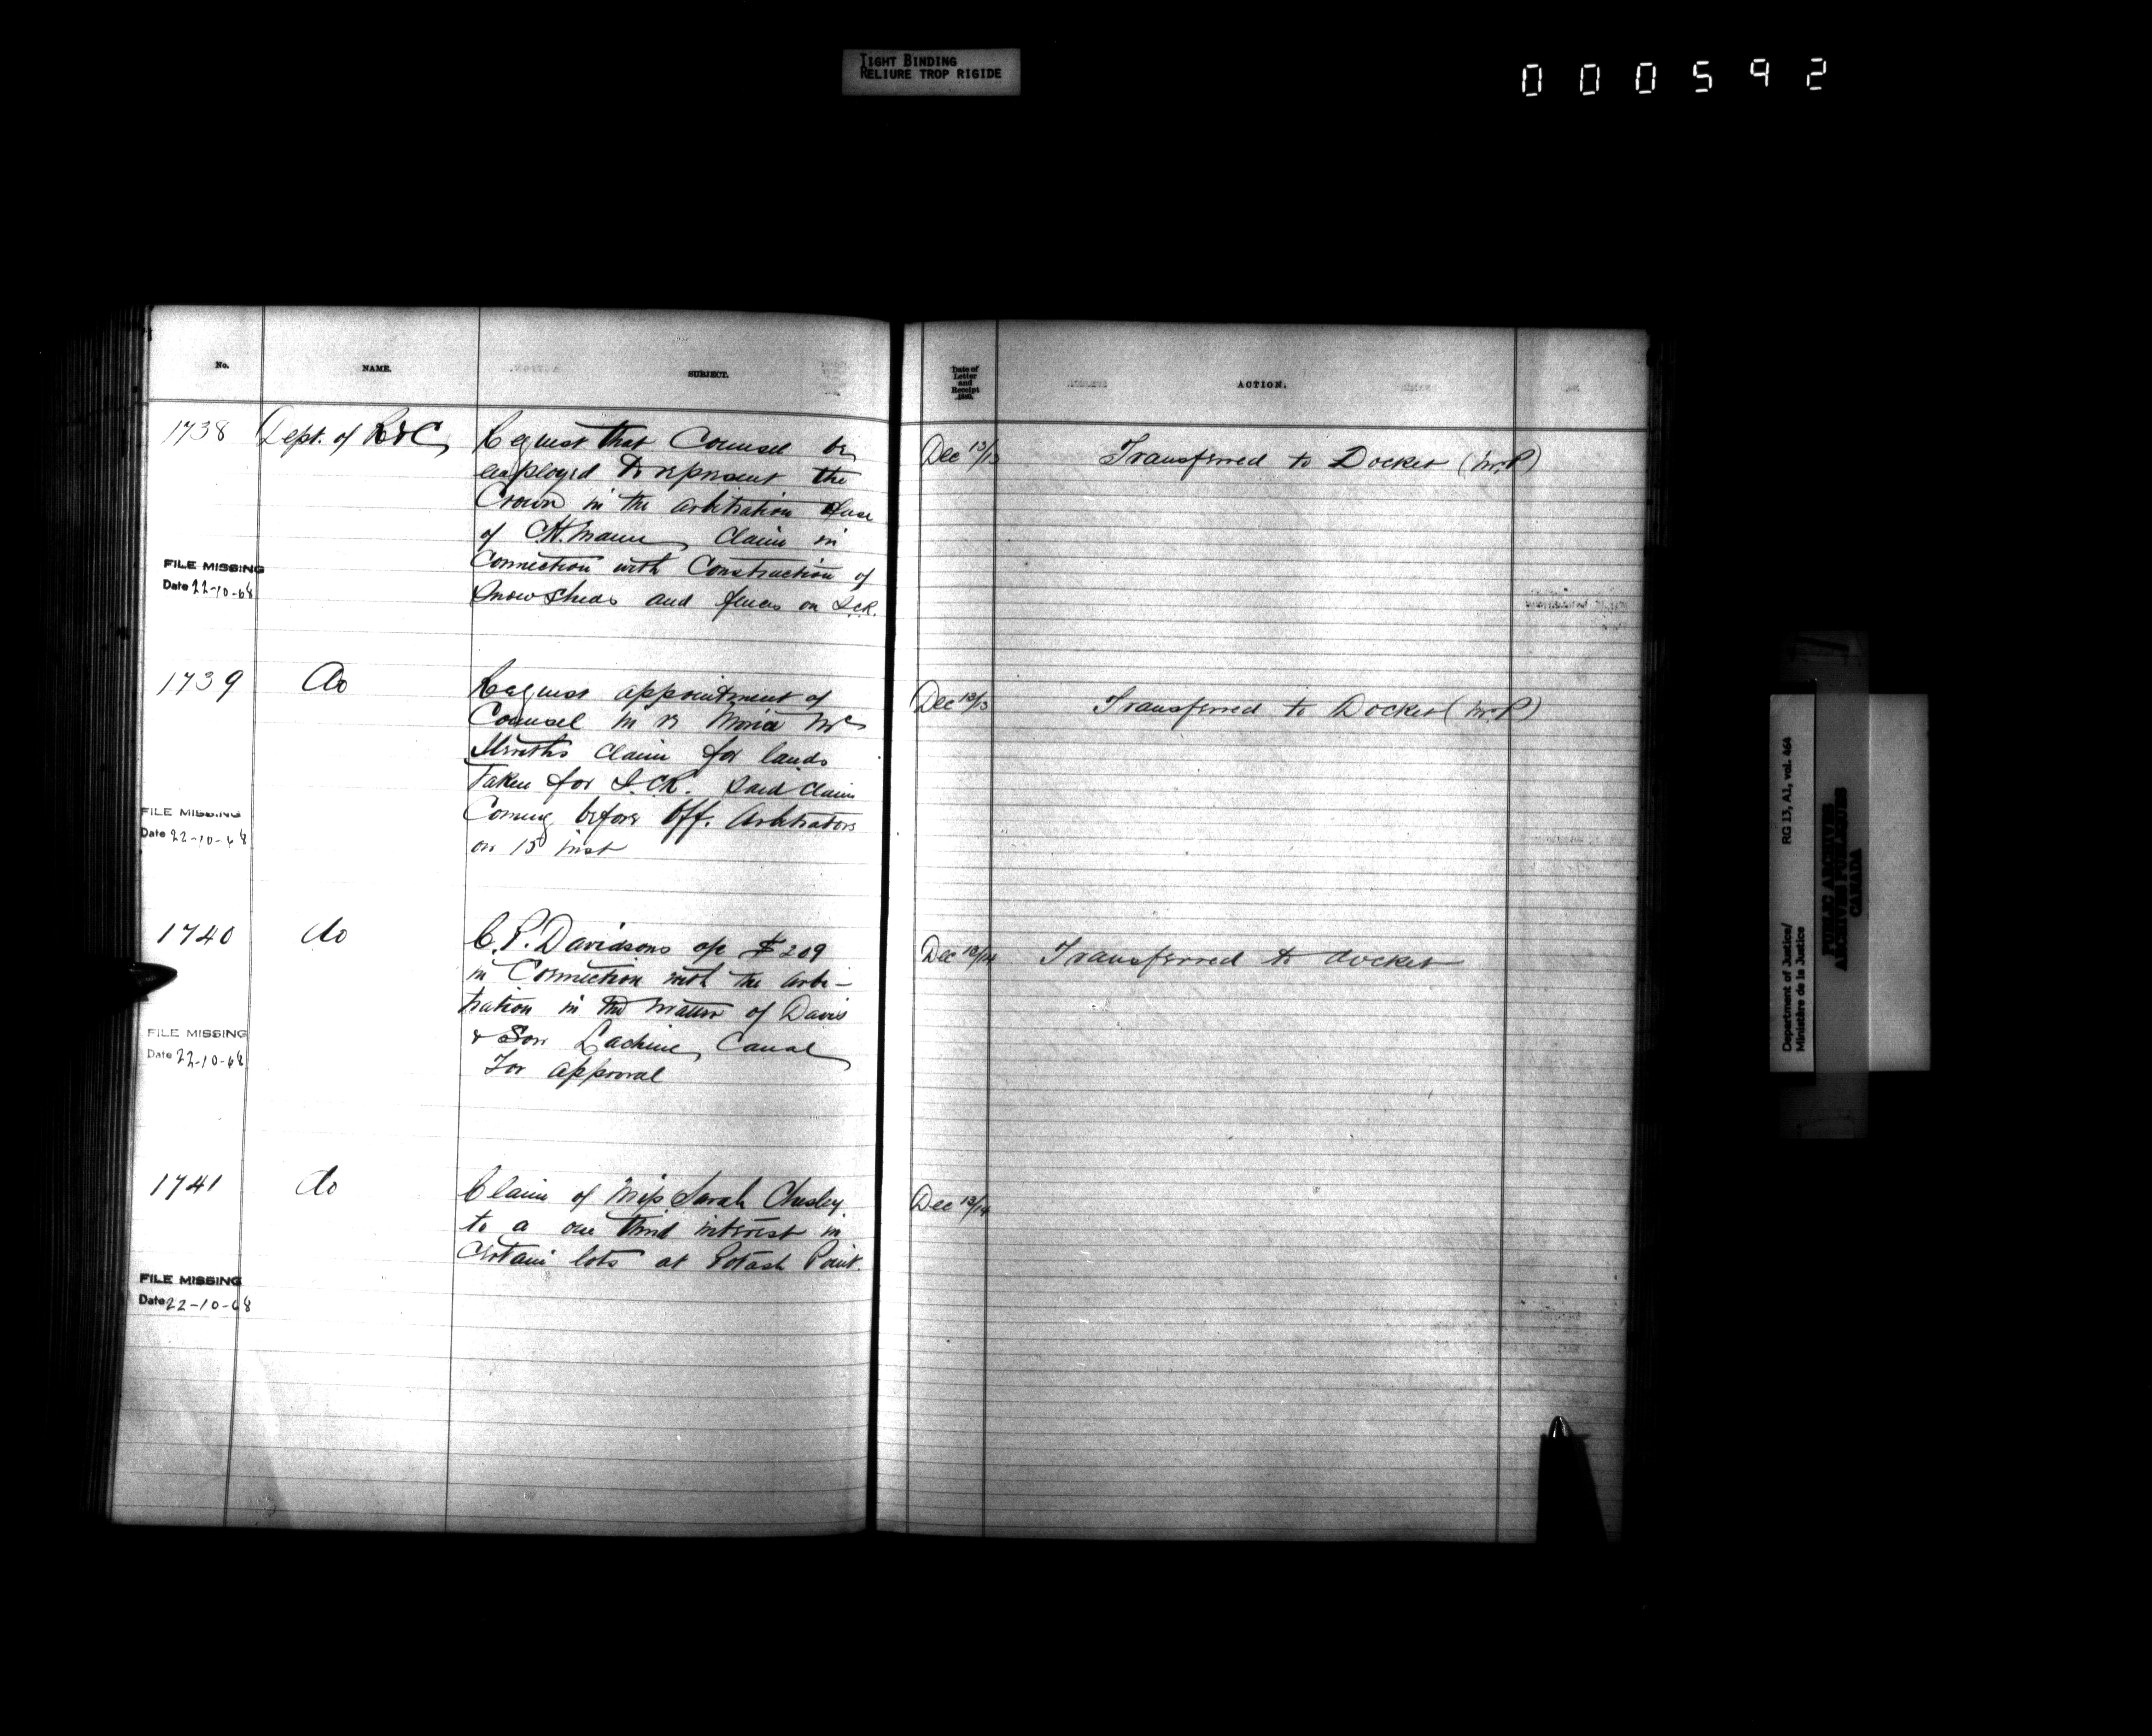 TIGHT BINDING
RELIURE TROP RIGIDE
000592
No. NAME. SUBJECT.
Date of Letter and Receipt ACTION.
1738 Dept. of R&C Request that Counsel be
employed to represent the
Crown in the arbitration
of C.H. Mann Claim in
Connection with Construction of
Snow Sheds and fences on I.C.R.
FILE MISSING
Date 22-10-68
Dec 12/13 Transferred to Docket (Mr. P)
1739 do Request appointment of
Counsel in re Mc
claim for lands
Taken for I.C.R. Said claim
Coming before Off. Arbitrators
on 15 inst
FILE MISSING
Date 22-10-68
Dec 12/13 Transferred to Docket (Mr. P)
1740 do C.P. Davidsons a/c $209
in Connection with the arbi-
tration in the matter of Davis
& Son Lachine Canal
For approval
FILE MISSING
Date 22-10-68
Dec 13/14 Transferred to docket
1741 do Claim of Miss Sarah Chesley
to a one third interest in
Certain lots at Potash Point.
FILE MISSING
Date 22-10-68
Dec 13/14
Department of Justice/ RG 13, A1, vol. 464
Ministère de la Justice
PUBLIC ARCHIVES
ARCHIVES PUBLIQUES
CANADA